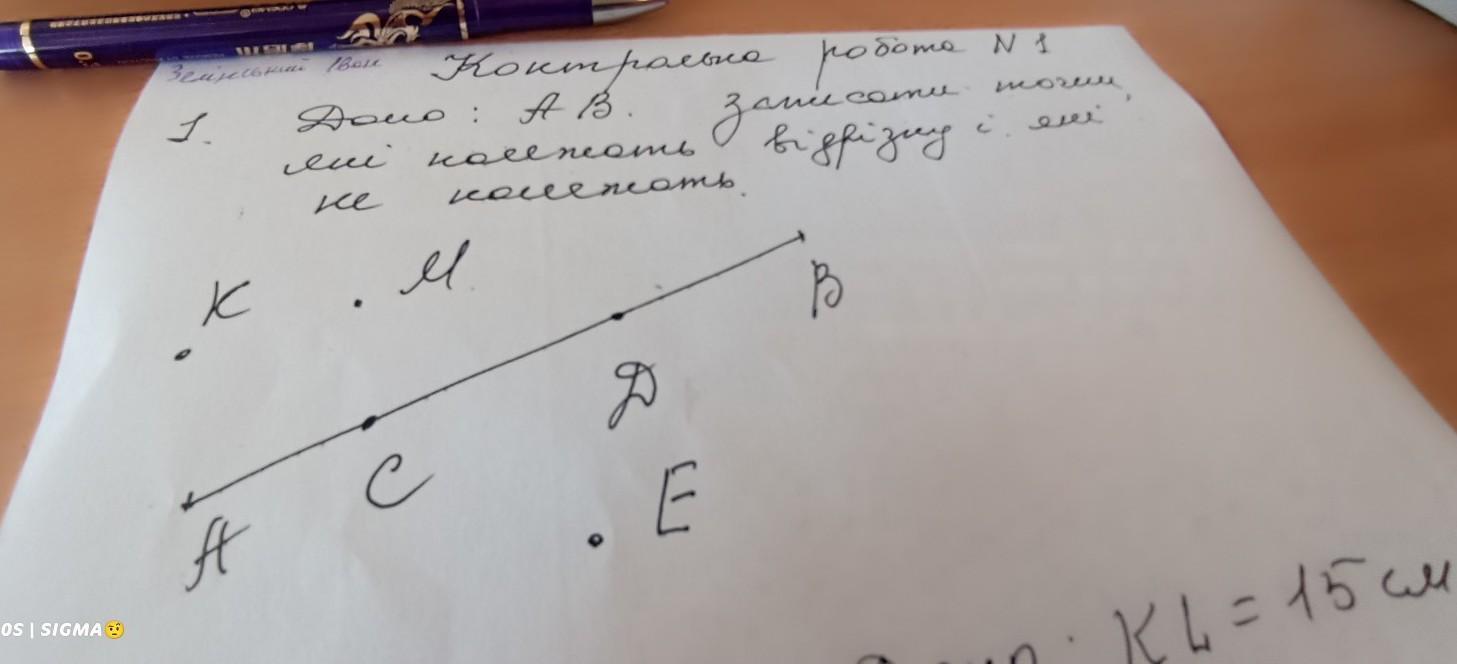 Зелінський Іван
Контрольна робота N 1
1. Дано: АВ. Записати точки,
які належать відрізку і які
не належать.
К
М
В
D
С
Е
А
KL = 15 см
OS | SIGMA🤨